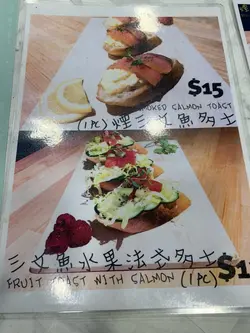 $15
SMOKED SALMON TOAST
(1PC)煙三文魚多士
三文魚水果法式多士
FRUIT TOAST WITH SALMON (1PC)